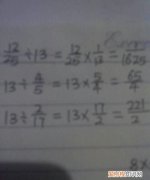 12/25 ÷ 13 = 12/25 × 1/13 = 
13 ÷ 4/5 = 13 × 5/4 = 65/4
13 ÷ 2/17 = 13 × 17/2 = 221/2
8×